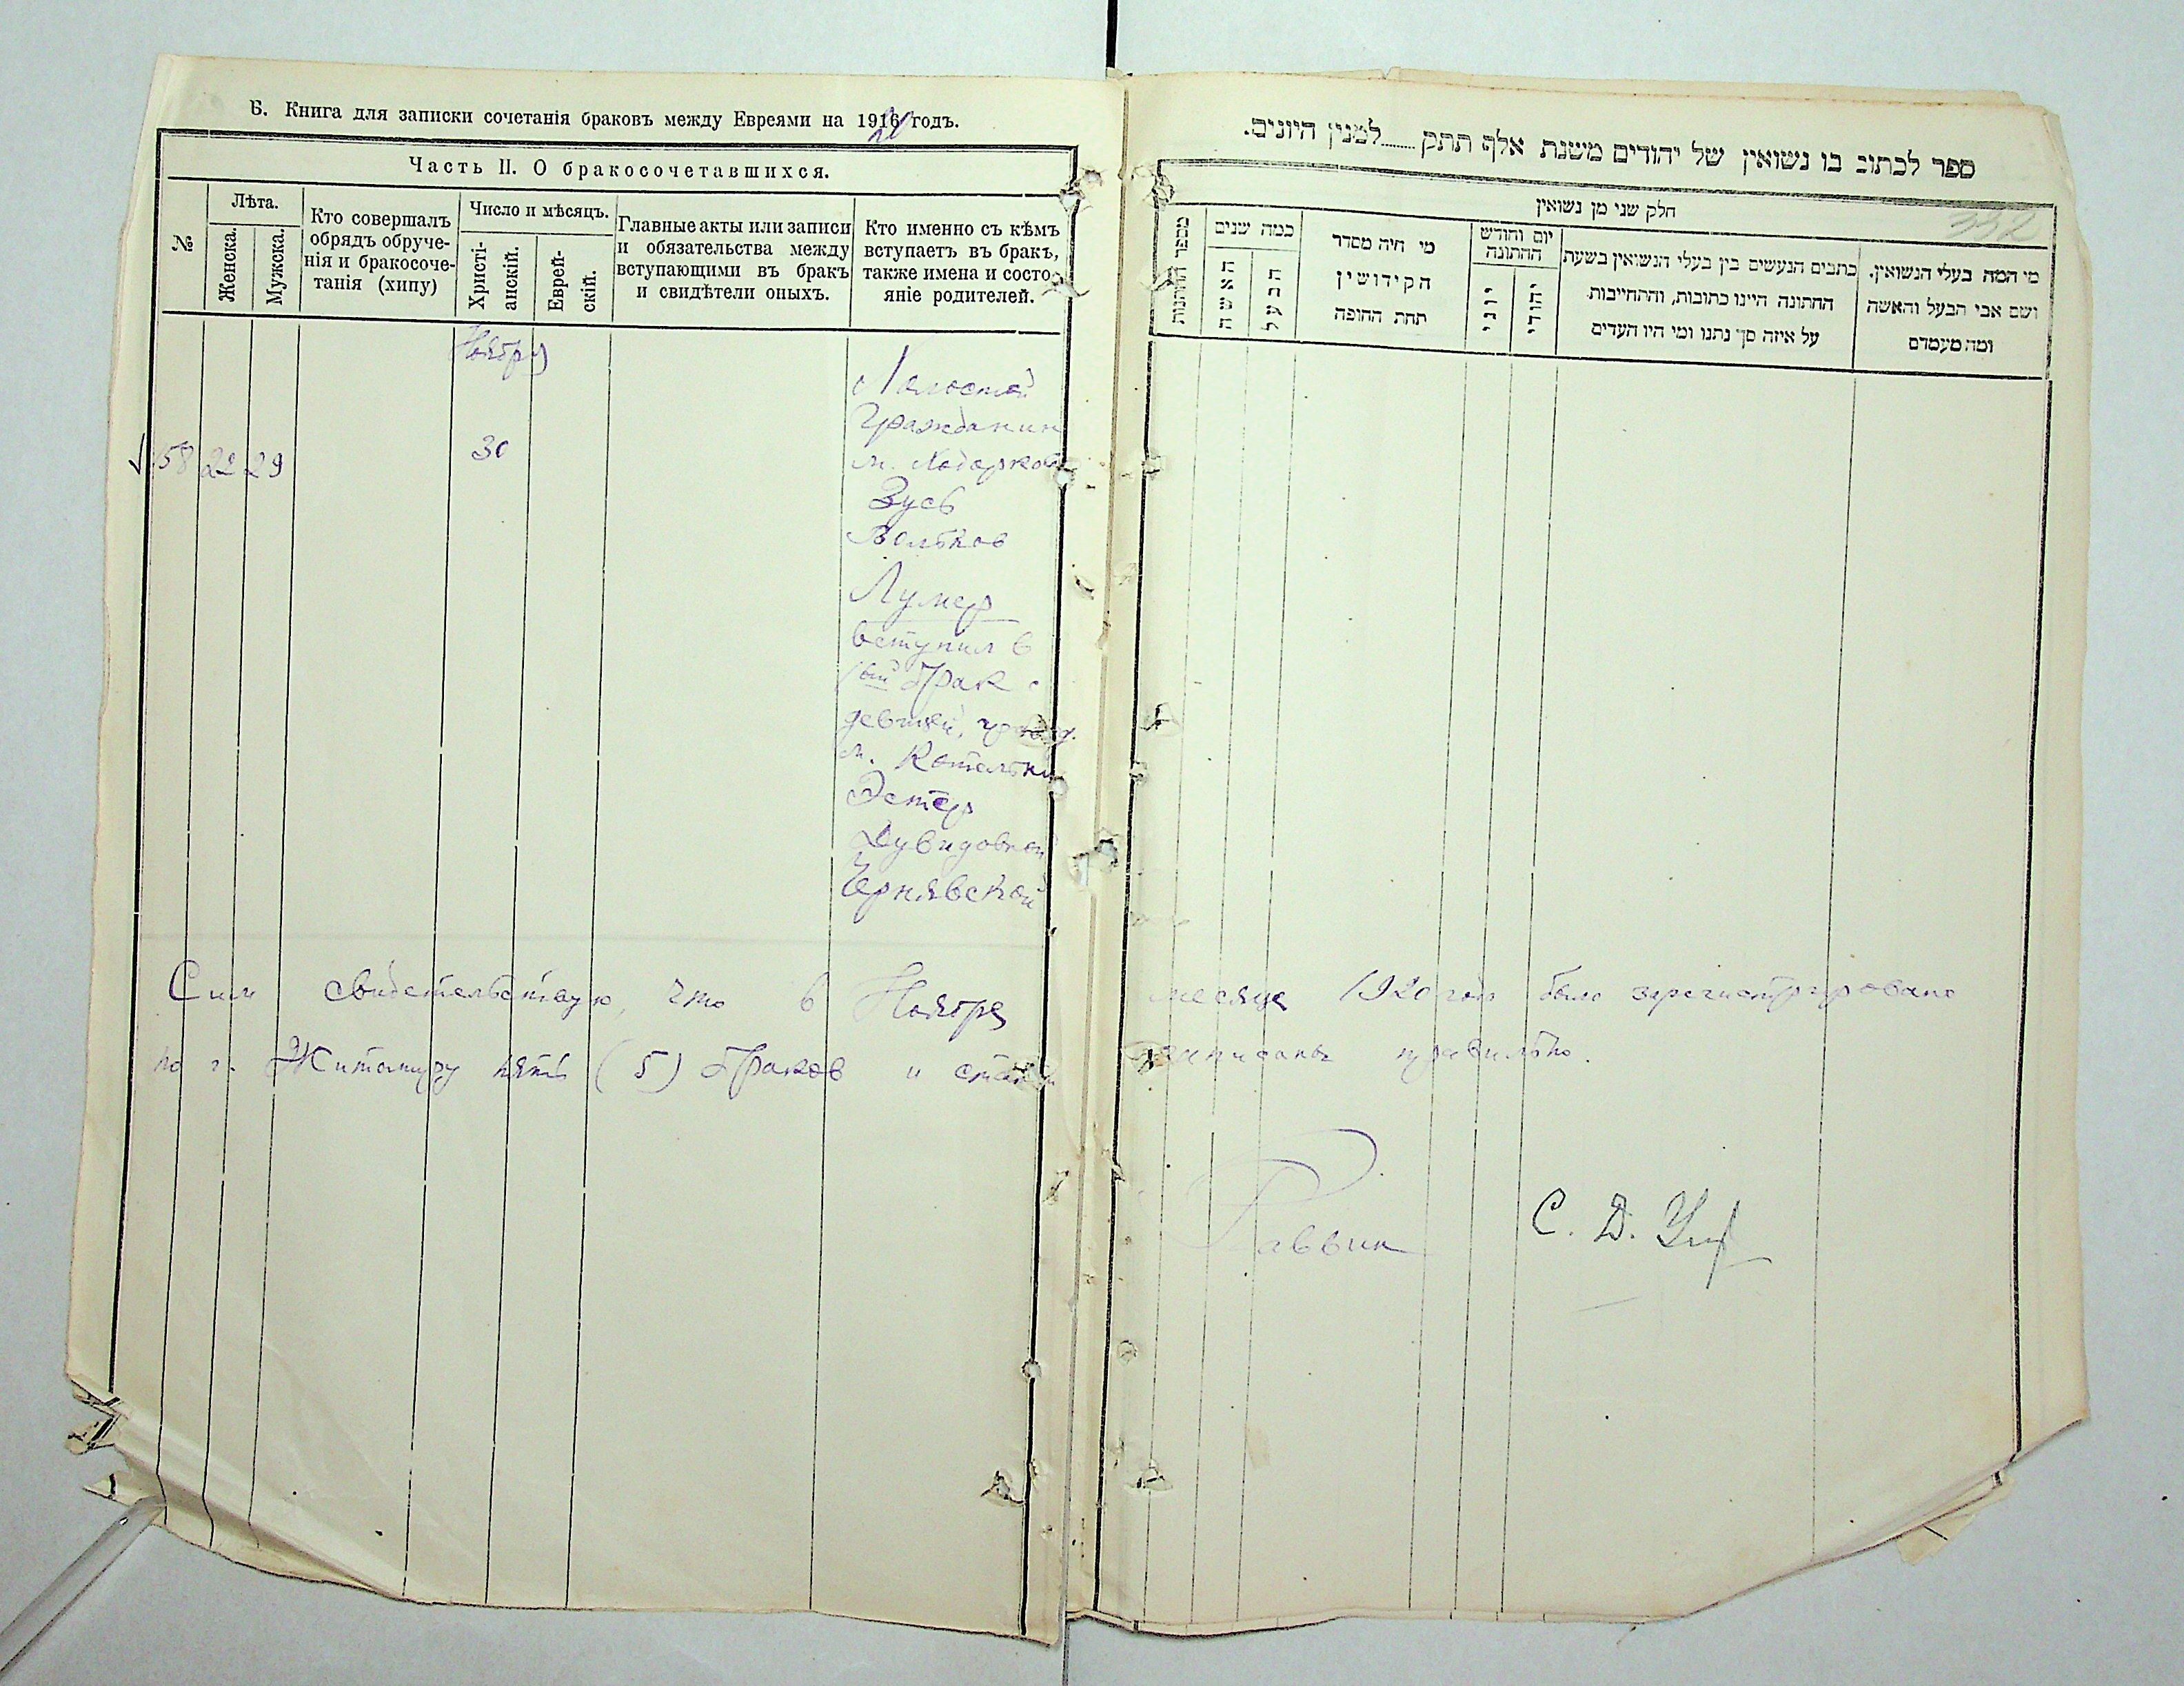 Б. Книга для записки сочетанія браковъ между Евреями на 1916 годъ.
20
Часть II. О бракосочетавшихся.
№
Лѣта.
Женска.
Мужска.
Кто совершалъ
обрядъ обруче-
нія и бракосоче-
танія (хипу)
Число и мѣсяцъ.
Христі-
анскій.
Еврей-
скій.
Главные акты или записи
и обязательства между
вступающими въ бракъ
и свидѣтели оныхъ.
Кто именно съ кѣмъ
вступаетъ въ бракъ,
также имена и состо-
яніе родителей.
Ноября
58 22 29 30
Холостой
Гражданин
м. Ходорков
Зусь
Вольков
Лумер
вступил в
1ый брак с
девицей, гражд.
м. Котельни
Эстер
Дувидовной
Чернявской
ספר לכתוב בו נשואין של יהודים משנת אלף תתק........למנין היונים.
332
חלק שני מן נשואין
מספר החתונות
כמה שנים
האשה
הבעל
מי היה מסדר
הקידושין
תחת החופה
יום וחודש
החתונה
יוני
יהודי
כתבים הנעשים בין בעלי הנשואין בשעת
החתונה היינו כתובות, והתחייבות
על איזה סך נתנו ומי היו העדים
מי המה בעלי הנשואין.
ושם אבי הבעל והאשה
ומה מעמדם
Сим свидетельствую, что в Ноябре месяце 1920 года было зарегистрировано
по г. Житомиру пять (5) браков и статьи записаны правильно.
Раввин С. Д.